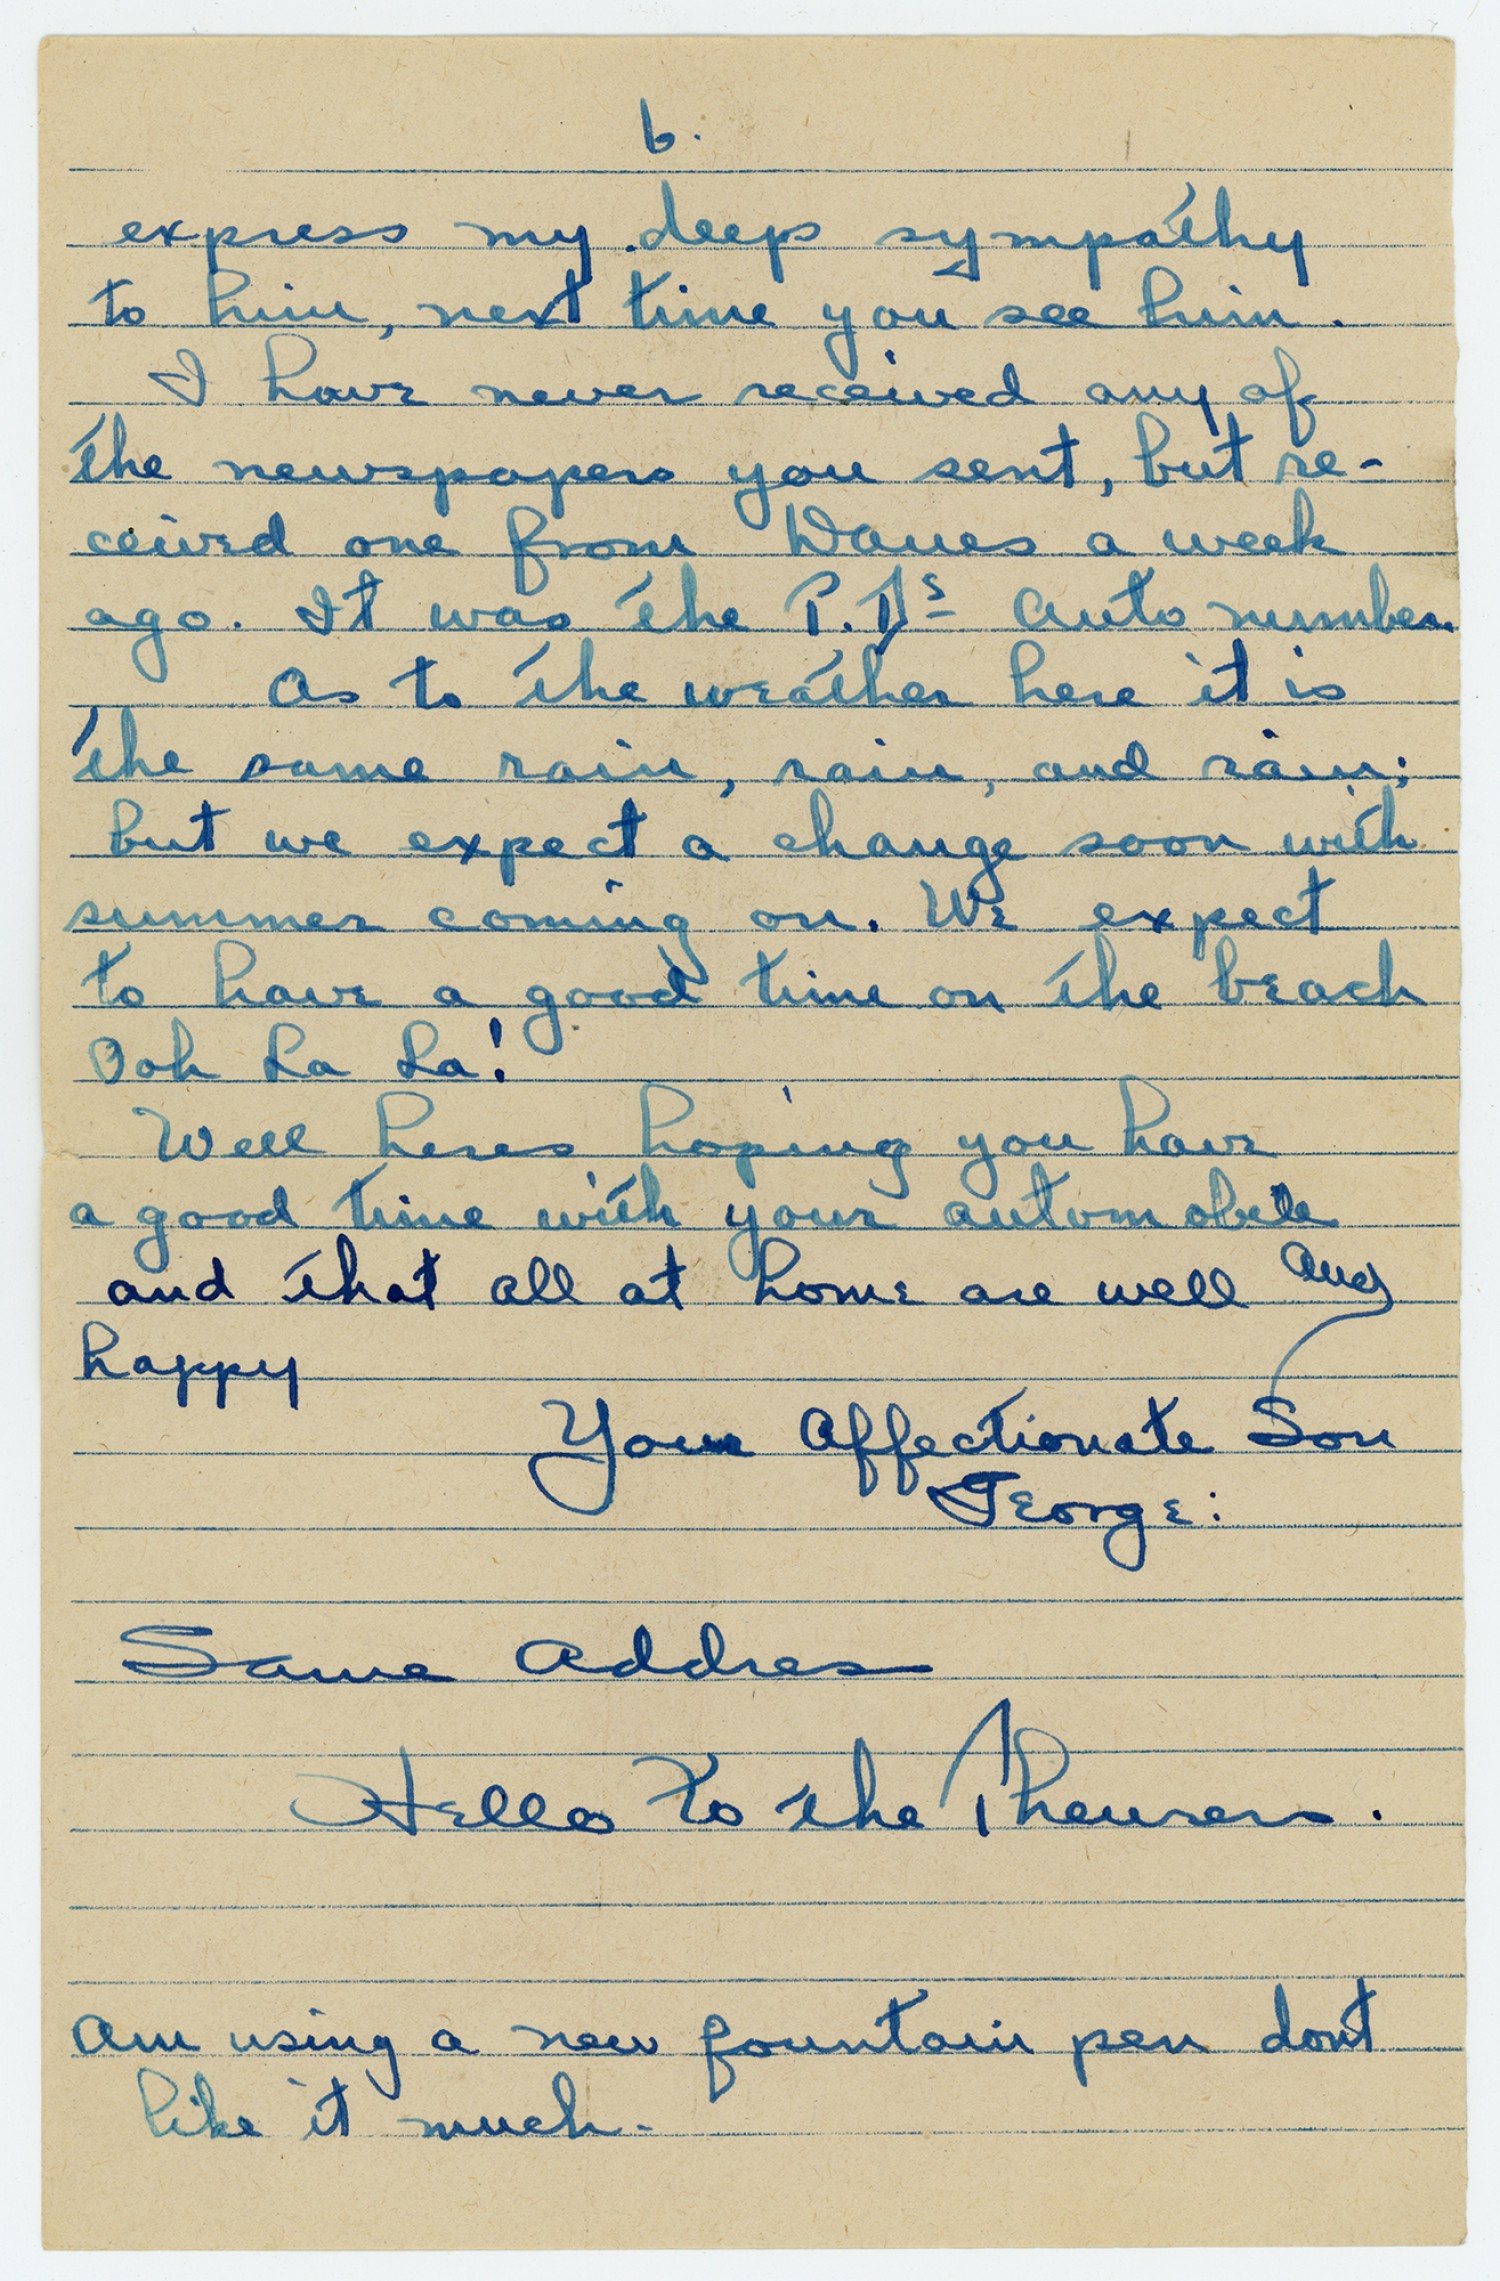 6.
express my deep sympathy
to him, next time you see him.
I have never received any of
the newspapers you sent, but re-
ceived one from Danes a week
ago. It was the P. Auto number.
As to the weather here it is
the same rain, rain, and rain;
but we expect a change soon with
summer coming on. We expect
to have a good time on the beach
Ooh La La!
Well heres hoping you have
a good time with your automobile
and that all at home are well and
happy
Your Affectionate Son
George:
Same Address
Hello to the
Am using a new fountain pen dont
like it much.